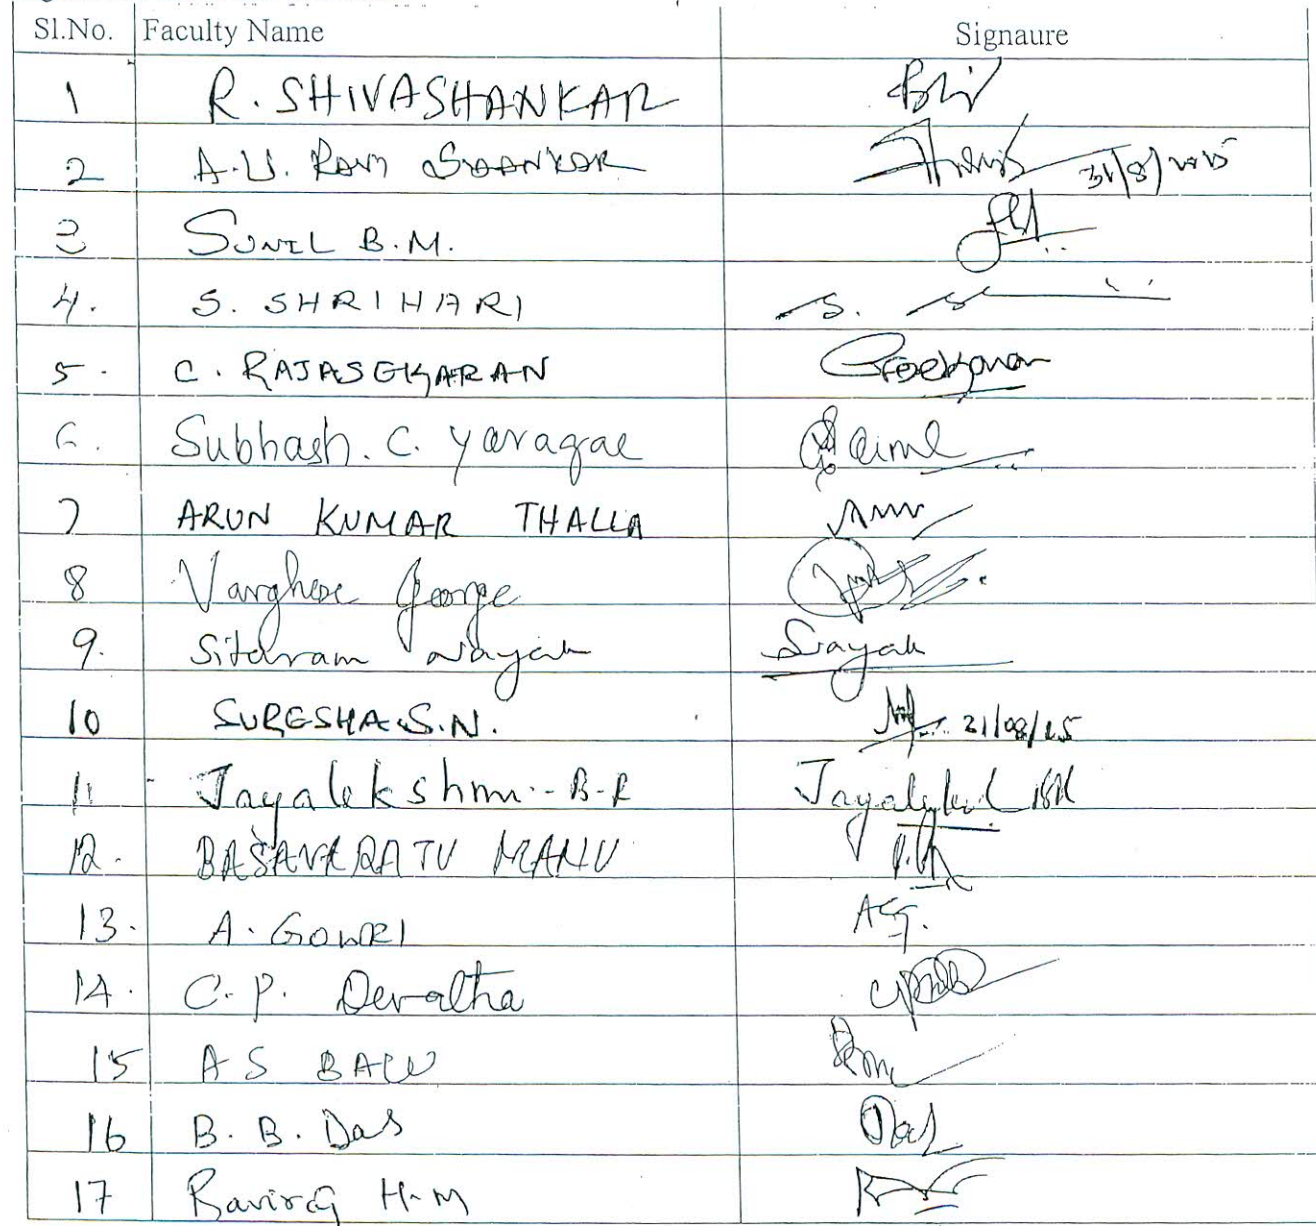 Sl.No. Faculty Name Signaure
1 R. SHIVASHANKAR
2 A.U. Ravi Shankar 31/8/2015
3 SUNIL B.M.
4. S. SHRIHARI S.
5. C. RAJASEKARAN
6. Subhash. C. Yaragal
7 ARUN KUMAR THALLA
8 Varghese George
9. Sitaram Nayak Snayak
10 SURESHA.S.N. 31/08/15
11 Jayalekshmi. B-R
12. BASAVARAJU MANU
13. A. GOWRI
14. C.P. Devatha
15 A S BALU
16 B. B. Das Das
17 Raviraj H.M